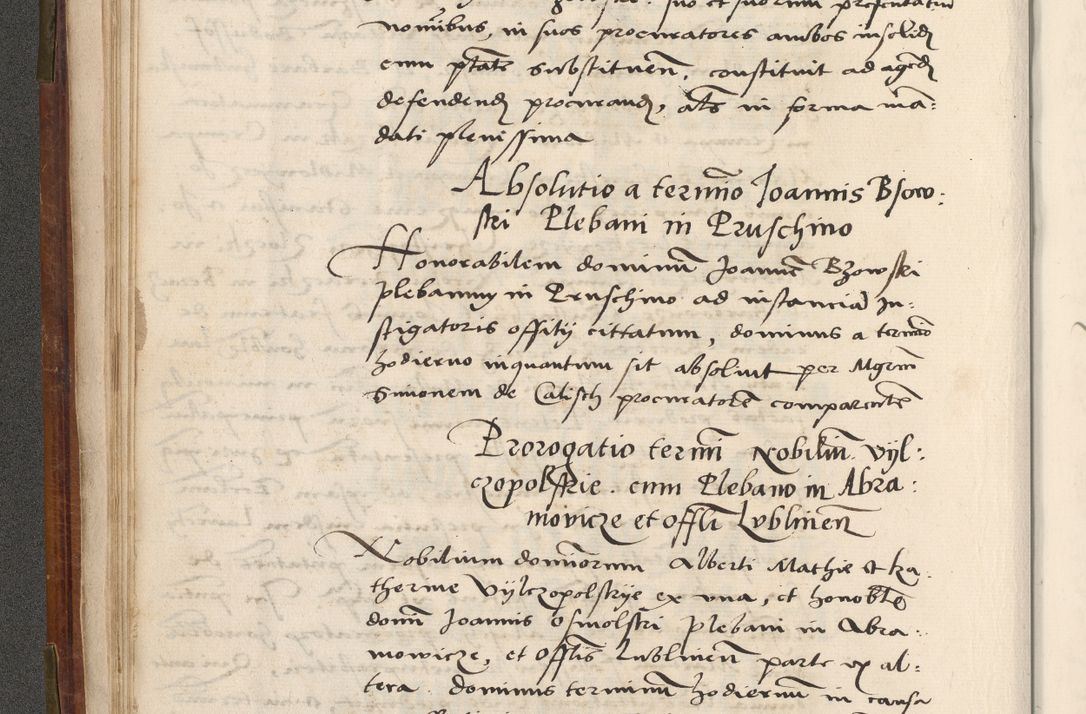 suo et suorum presentatim
nominibus, in suos procuratores ambos insolidȝ
cum ptāte substituen̄, constituit ad agēdȝ
defendendȝ procurandȝ, als̄ in forma man̄:
dati plenissima
Absolutio a termino Joannis Bsow:
ski Plebani in Pruschino
Honorabilem dominū Joannē Bzowski
plebanum in Pruschino ad instanciā In:
stigatoris offitij cittatum, dominus a termino
hodierno inquantum sit absoluit per Mgrm̄
Simonem de Calisch procuratorē comparentē
Prorogatio termi Nobiliū Vyl:
czopolskie . cum Plebano in Abra:
movicze et Offli Lvblinen̄
Nobilium dominorum Alberti Mathie et Ka:
therine Vylczopolskye ex una, et honoblē
domi Joannis Osmolski Plebani in Abra:
mowicze, et Offlis Lublinen̄ parte ex al:
tera. dominus terminum hodiernum in causa